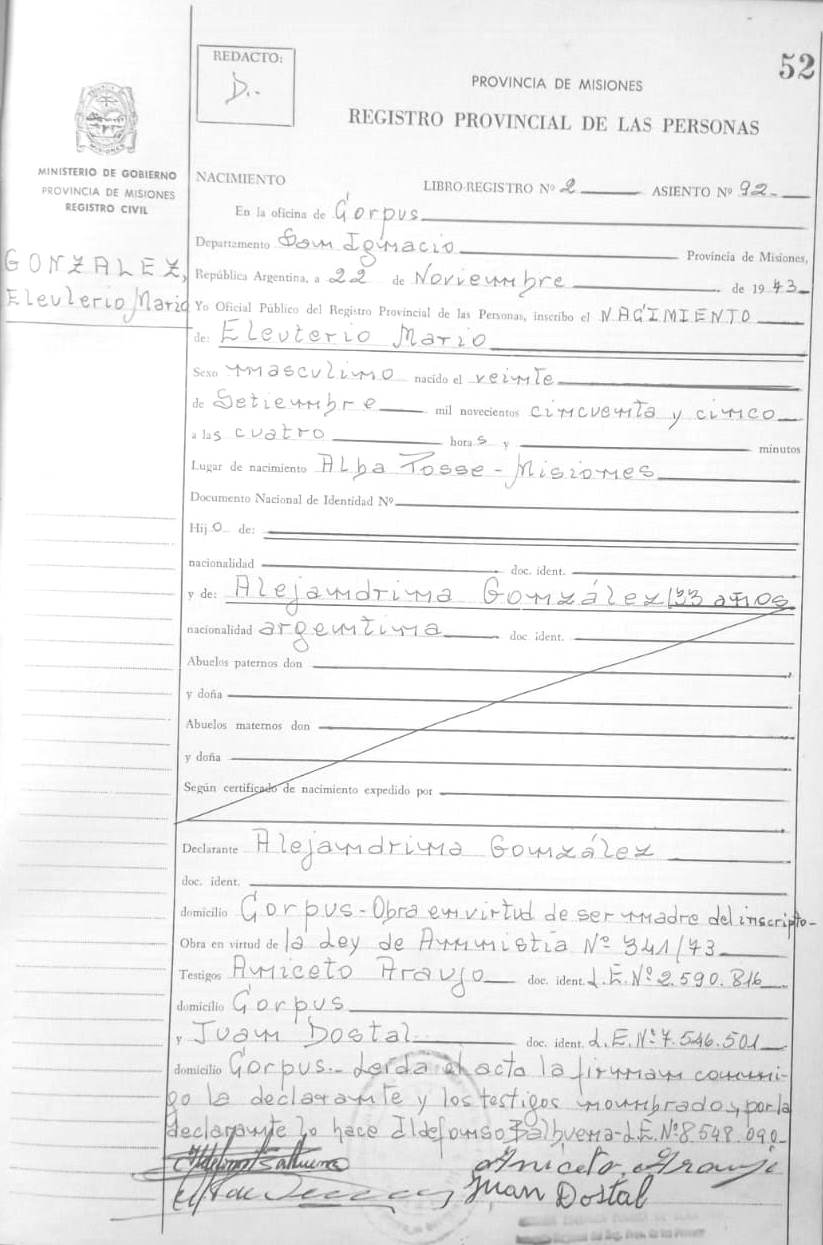 REDACTO:
D.-
52
PROVINCIA DE MISIONES
REGISTRO PROVINCIAL DE LAS PERSONAS
MINISTERIO DE GOBIERNO
PROVINCIA DE MISIONES
REGISTRO CIVIL
GONZALEZ,
Eleuterio Mario
NACIMIENTO LIBRO-REGISTRO Nº 2 ASIENTO Nº 92-
En la oficina de Corpus
Departamento San Ignacio Provincia de Misiones,
República Argentina, a 22 de Noviembre de 1973
Yo Oficial Público del Registro Provincial de las Personas, inscribo el NACIMIENTO
de: Eleuterio Mario
Sexo masculino nacido el veinte
de Setiembre mil novecientos cincuenta y cinco
a las cuatro horas y minutos
Lugar de nacimiento Alba Posse - Misiones
Documento Nacional de Identidad Nº
Hijo de:
nacionalidad doc. ident.
y de: Alejandrina González/33 años
nacionalidad argentina doc. ident.
Abuelos paternos don
y doña
Abuelos maternos don
y doña
Según certificado de nacimiento expedido por
Declarante Alejandrina González
doc. ident.
domicilio Corpus - Obra en virtud de ser madre del inscripto-
Obra en virtud de la Ley de Amnistia Nº 341/73
Testigos Aniceto Araujo doc. ident. L.E. Nº 2.590.816
domicilio Corpus
y Juan Dostal doc. ident. L.E. Nº 7.546.501
domicilio Corpus.- Leida el acta la firman conmi-
go la declarante y los testigos nombrados, por la
declarante lo hace Ildefonso Balbuena-L.E. Nº 8.548.090-
Ildefonso Balbuena
Aniceto Araujo
Juan Dostal